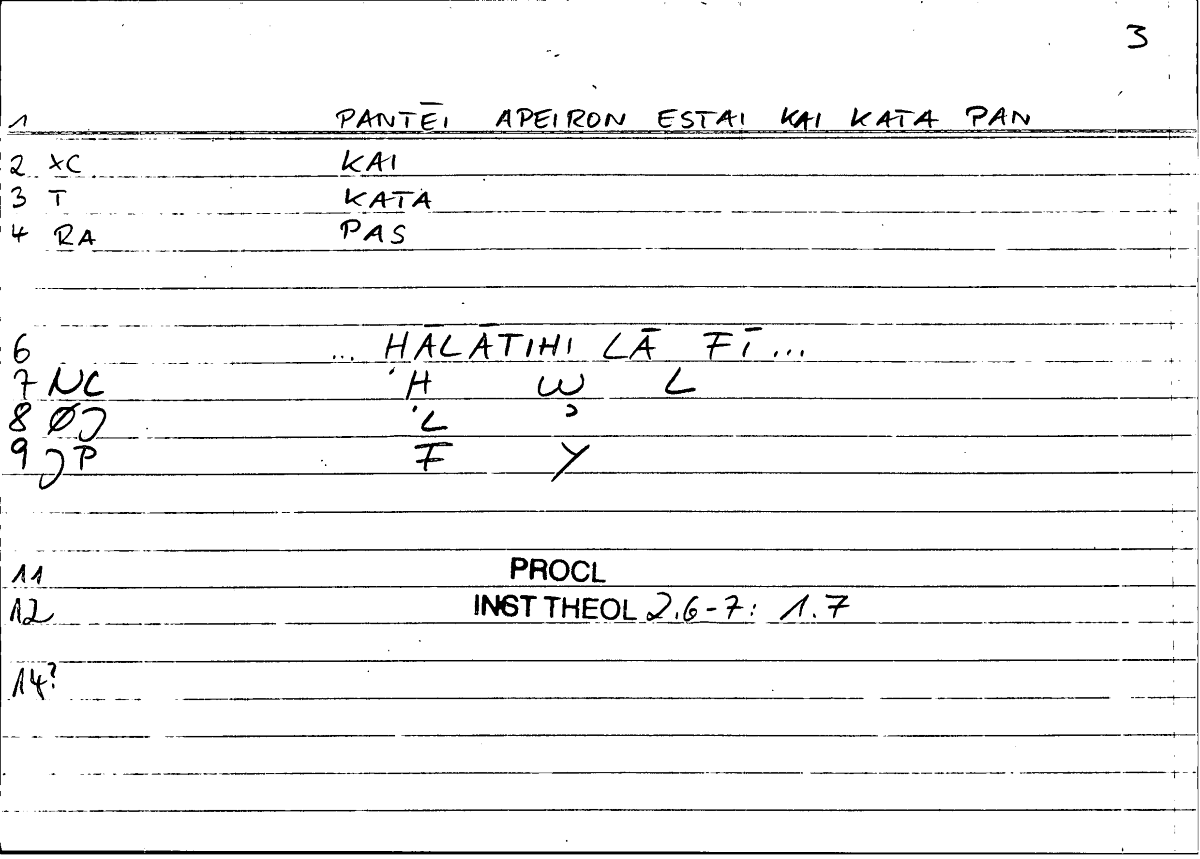 3
1 PANTĒI APEIRON ESTAI KAI KATA PAN
2 XC KAI
3 T KATA
4 RA PAS
6 ... HĀLĀTIHI LĀ FĪ...
7 NC 'H W L
8 ØJ 'L ʾ
9 JP F Y
11 PROCL
12 INST THEOL 2.6-7: 1.7
14?